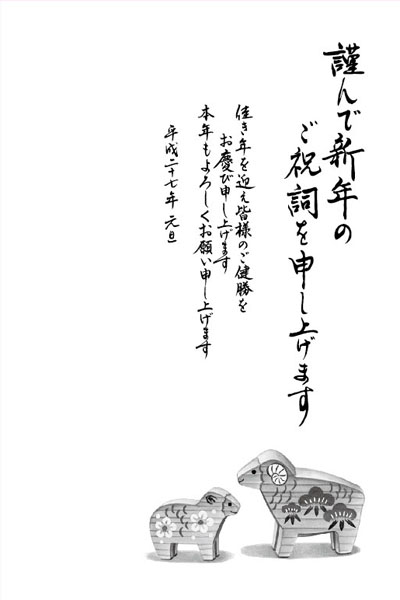 謹んで新年の
ご祝詞を申し上げます
佳き年を迎え皆様のご健勝を
お慶び申し上げます
本年もよろしくお願い申し上げます
平成二十七年 元旦